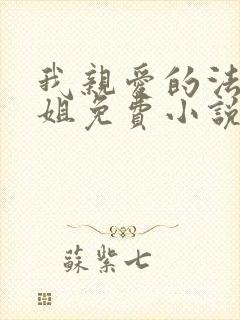 我親愛的法
姐免費小說
蘇紫七